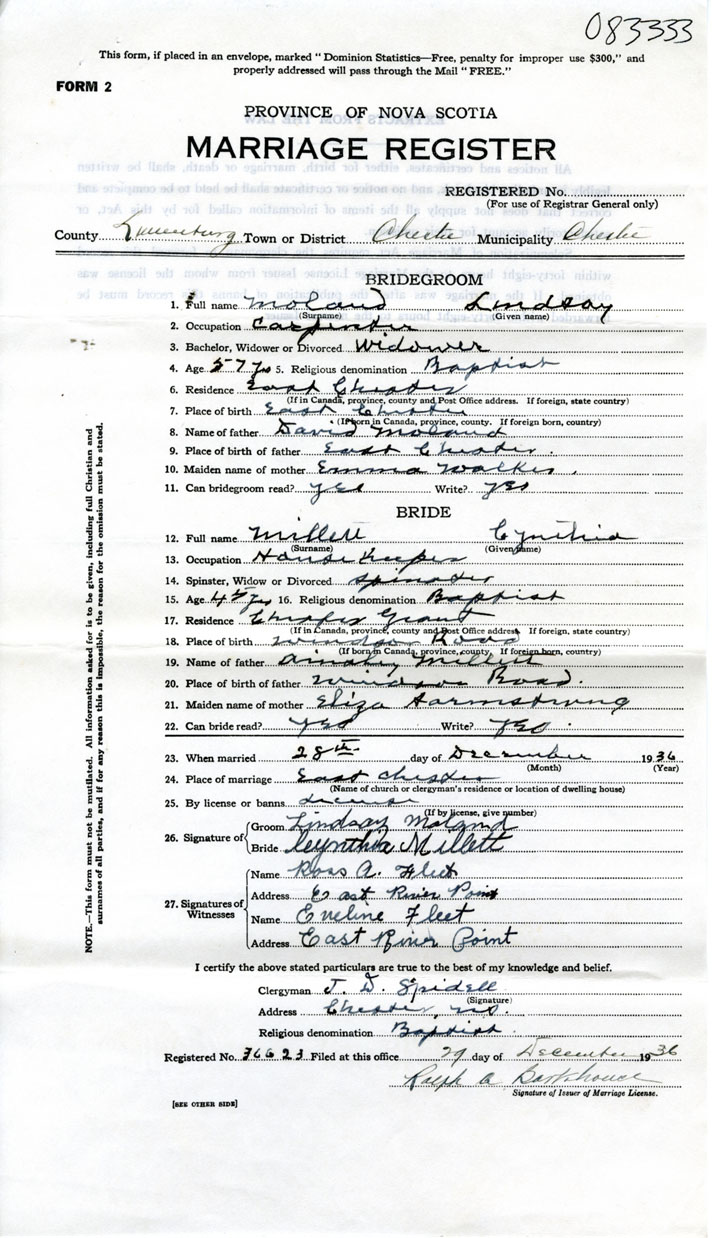 083333
This form, if placed in an envelope, marked " Dominion Statistics—Free, penalty for improper use $300," and
properly addressed will pass through the Mail "FREE."
FORM 2
PROVINCE OF NOVA SCOTIA
MARRIAGE REGISTER
REGISTERED No.
(For use of Registrar General only)
County Lunenburg Town or District Chester Municipality Chester
BRIDEGROOM
1. Full name Moland Lindsay
(Surname) (Given name)
2. Occupation Carpenter
3. Bachelor, Widower or Divorced Widower
4. Age 57 yrs 5. Religious denomination Baptist
6. Residence East Chester
(If in Canada, province, county and Post Office address. If foreign, state country)
7. Place of birth East Chester
(If born in Canada, province, county. If foreign born, country)
8. Name of father David Moland
9. Place of birth of father East Chester.
10. Maiden name of mother Emma Walker.
11. Can bridegroom read? yes Write? yes
BRIDE
12. Full name Millett Cynthia
(Surname) (Given name)
13. Occupation House Keeper
14. Spinster, Widow or Divorced Spinster
15. Age 45 yrs 16. Religious denomination Baptist
17. Residence Grant
(If in Canada, province, county and Post Office address If foreign, state country)
18. Place of birth Windsor Road
(If born in Canada, province, county. If foreign born, country)
19. Name of father Millett
20. Place of birth of father Windsor Road.
21. Maiden name of mother Eliza Harmstrung
22. Can bride read? yes Write? yes.
23. When married 28th day of December 1936
(Month) (Year)
24. Place of marriage East Chester
(Name of church or clergyman's residence or location of dwelling house)
25. By license or banns License
(If by license, give number)
26. Signature of Groom Lindsay Moland
Bride Ceynthia Millett
27. Signatures of Witnesses Name Ross A. Fleet
Address East River Point
Name Eveline Fleet
Address East River Point
I certify the above stated particulars are true to the best of my knowledge and belief.
Clergyman J. D. Spidell
(Signature)
Address Chester, N.S.
Religious denomination Baptist.
Registered No. 36623 Filed at this office 29 day of December 1936
Ralph A Barkhouse
Signature of Issuer of Marriage License.
[SEE OTHER SIDE]
NOTE.—This form must not be mutilated. All information asked for is to be given, including full Christian and
surnames of all parties, and if for any reason this is impossible, the reason for the omission must be stated.